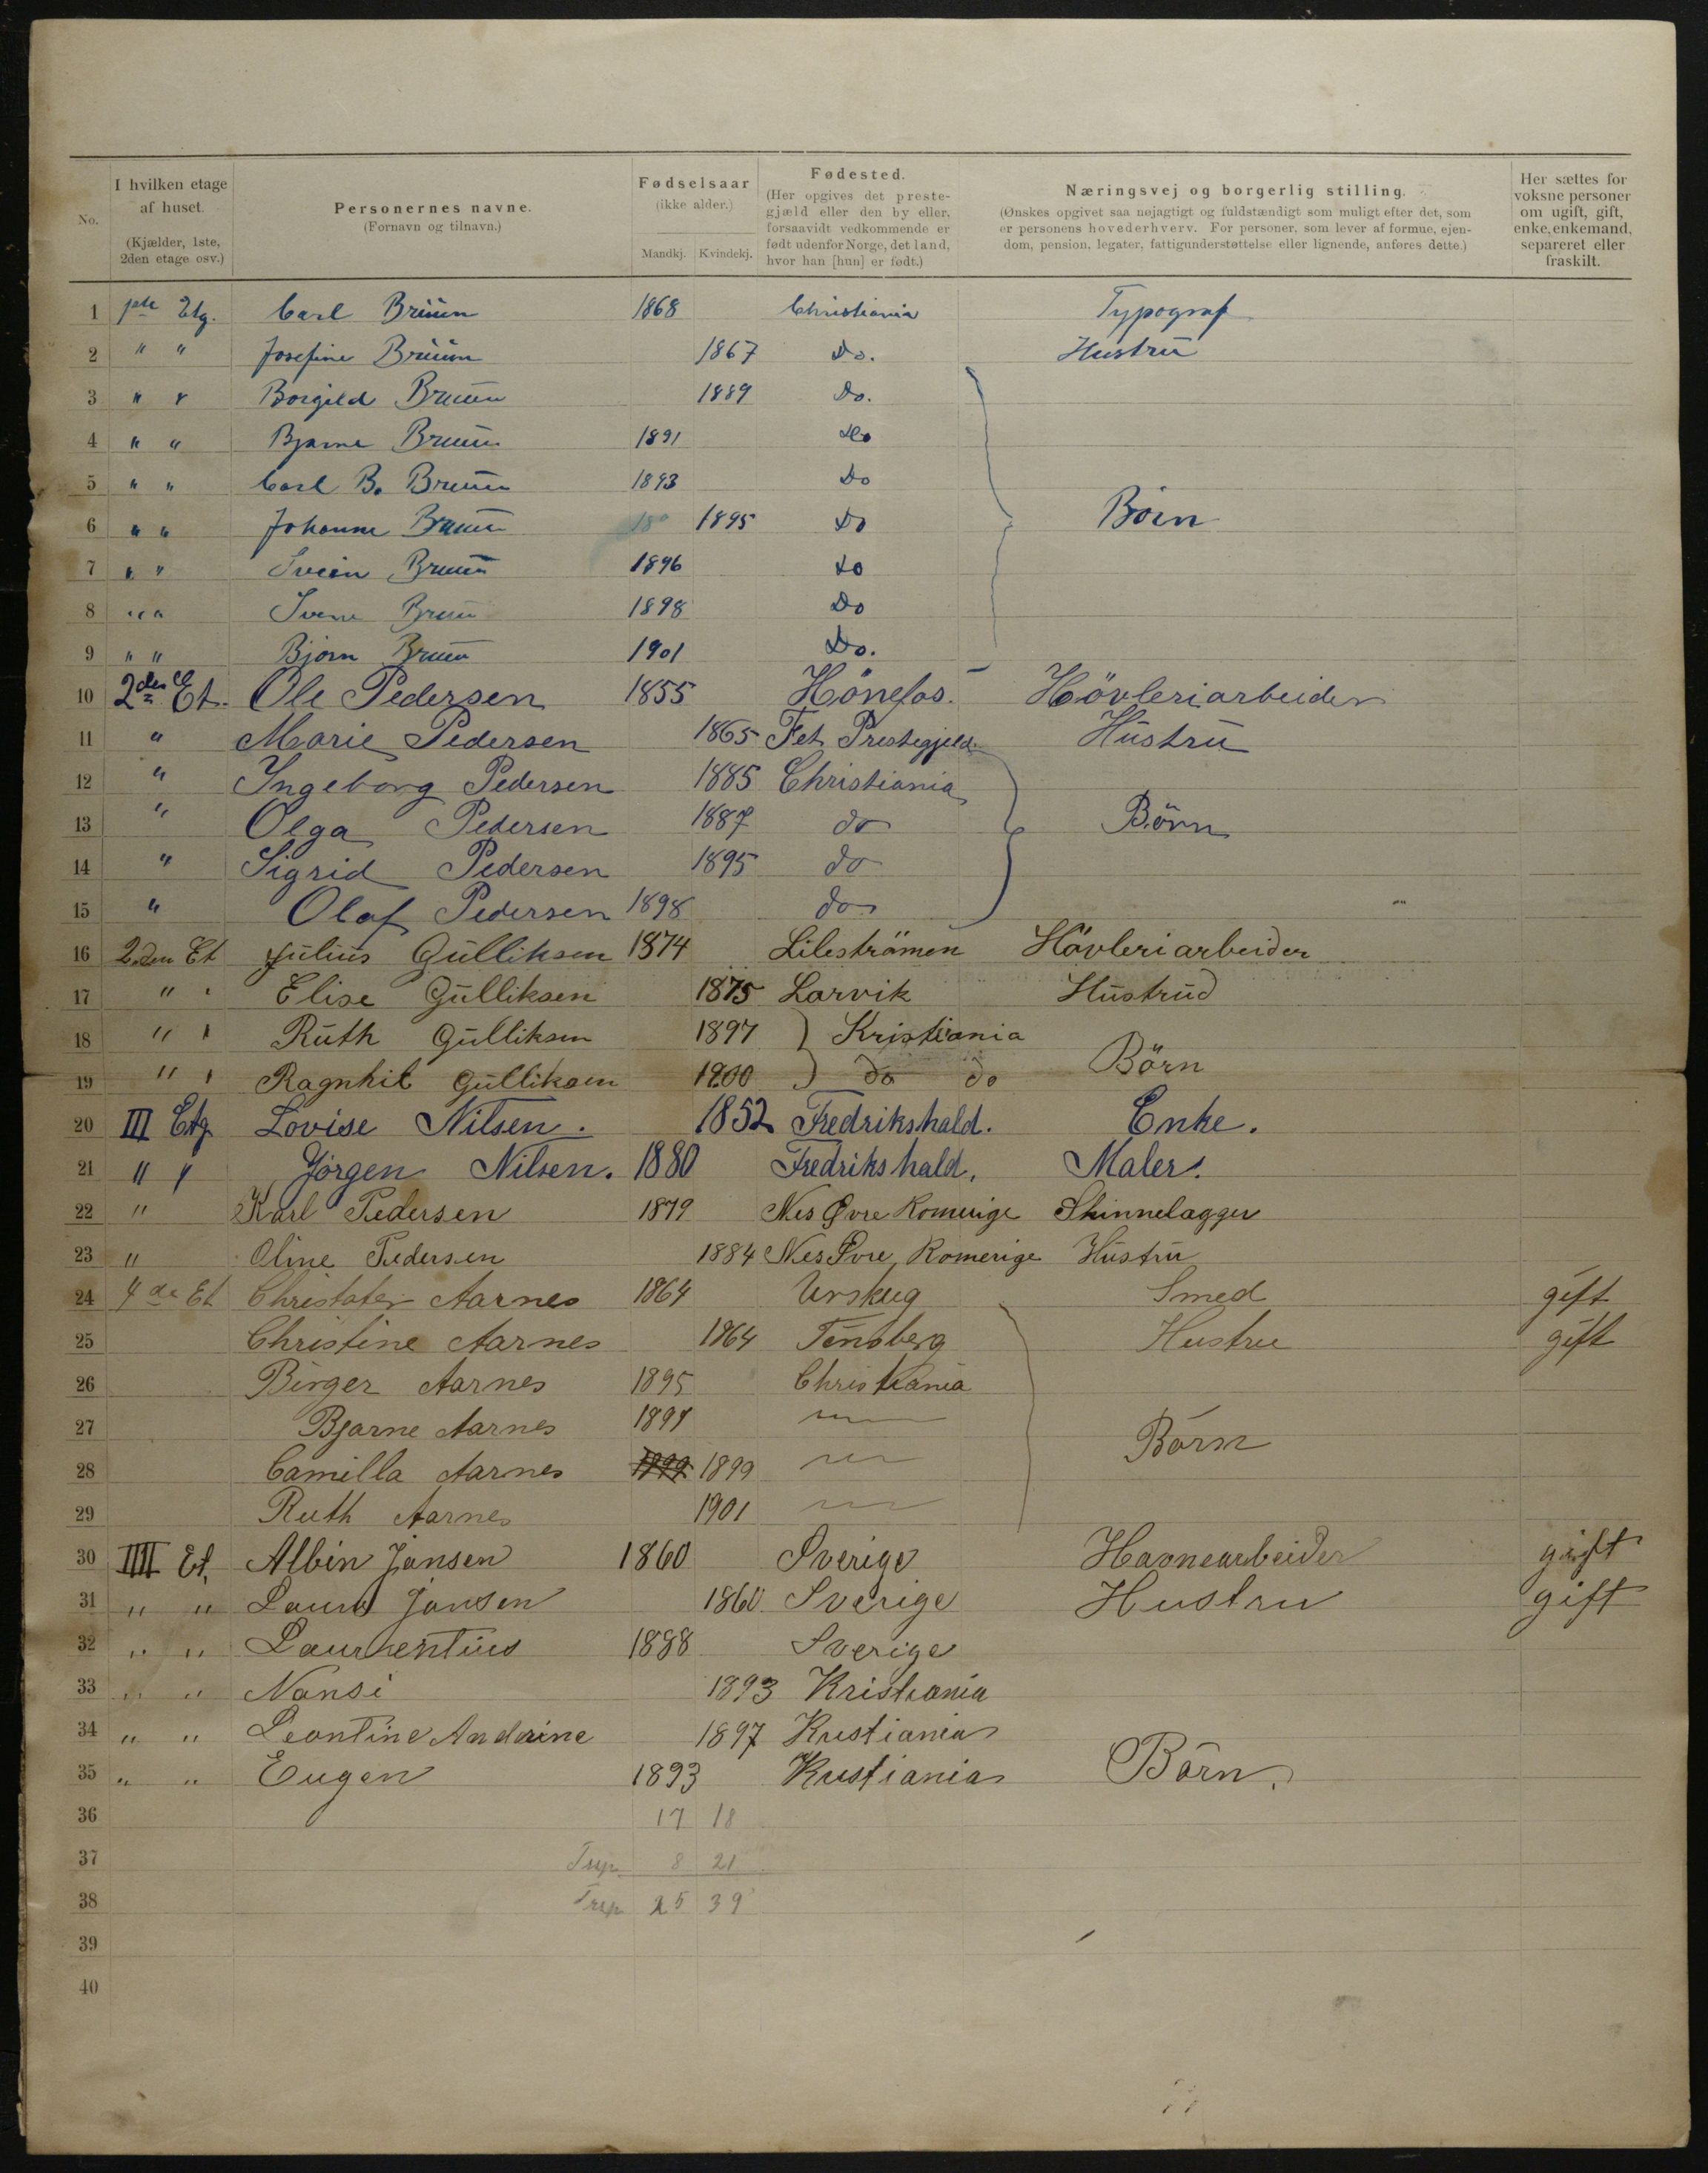 No. | I hvilken etage af huset. (Kjælder, 1ste, 2den etage osv.) | Personernes navne. (Fornavn og tilnavn.) | Fødselsaar (ikke alder.) Mandkj. Kvindekj. | Fødested. (Her opgives det prestegjæld eller den by eller, forsaavidt vedkommende er født udenfor Norge, det land, hvor han [hun] er født.) | Næringsvej og borgerlig stilling. (Ønskes opgivet saa nøjagtigt og fuldstændigt som muligt efter det, som er personens hovederhverv. For personer, som lever af formue, ejendom, pension, legater, fattigunderstøttelse eller lignende, anføres dette.) | Her sættes for voksne personer om ugift, gift, enke, enkemand, separeret eller fraskilt.
1 Etg. Carl Bruun 1868 Christiania Typograf
2 " " Josefine Bruun 1867 Do. Hustru
3 " " Borgild Bruun 1889 Do.
4 " " Bjarne Bruun 1891 Do
5 " " Carl B. Bruun 1893 Do
6 " " Johanne Bruun 1895 Do Börn
7 " " Svein Bruun 1896 Do
8 " " Bruun 1898 Do
9 " " Bjørn Bruun 1901 Do.
10 2den Et. Ole Pedersen 1855 Hönefos. Hövleriarbeider
11 " Marie Pedersen 1865 Fet Prestegjeld. Hustru
12 " Ingeborg Pedersen 1885 Christiania
13 " Olga Pedersen 1887 do Börn
14 " Sigrid Pedersen 1895 do
15 " Olaf Pedersen 1898 do
16 2den Et Julius Gulliksen 1874 Lileströmen Hövleriarbeider
17 " " Elise Gulliksen 1875 Larvik Hustrud
18 " " Ruth Gulliksen 1897 Kristiania
19 " " Ragnhil Gulliksen 1900 do do Börn
20 III Etg Lovise Nilsen. 1852 Fredrikshald. Enke.
21 " " Jörgen Nilsen. 1880 Fredrikshald. Maler.
22 " Karl Pedersen 1879 Nes Øvre Romerige Skinnelægger
23 " Oline Pedersen 1884 Nes Øvre Romerige Hustru
24 4de Et Christofer Aarnes 1864 Urskug Smed gift
25 Christine Aarnes 1964 Tønsberg Hustru gift
26 Birger Aarnes 1895 Christiania
27 Bjarne Aarnes 1897
28 Camilla Aarnes 1899 1899 Börn
29 Ruth Aarnes 1901
30 IIII Et. Albin Jansen 1860 Sverige Havnearbeider gift
31 " " Laura Jansen 1860 Sverige Hustru gift
32 " " Laurentius 1888 Sverige
33 " " Nansi 1893 Kristiania
34 " " Leontine Andrine 1897 Kristiania
35 " " Eugen 1893 Kristiania Börn.
36 17 18
37 8 21
38 25 39
39
40